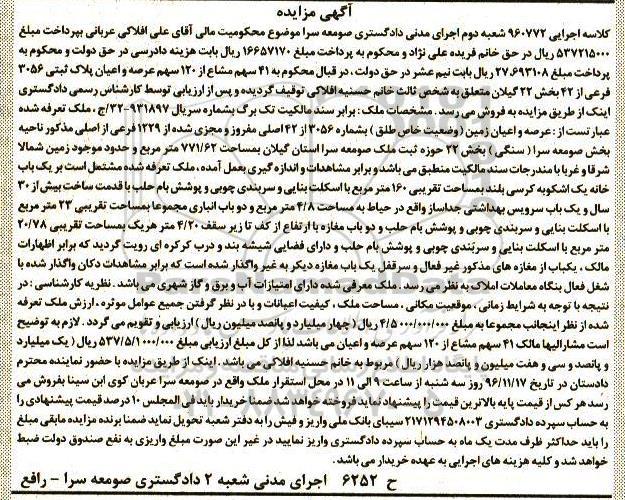 آگهی مزایده
کلاسه اجرایی ۹۶۰۷۷۲ شعبه دوم اجرای مدنی دادگستری صومعه سرا موضوع محکومیت مالی آقای علی افلاکی عربانی بپرداخت مبلغ
۵۳۷۲۱۵۰۰۰ ریال در حق خانم فریده علی نژاد و محکوم به پرداخت مبلغ ۱۶۶۵۷۱۷۰ ریال بابت هزینه دادرسی در حق دولت و محکوم به
پرداخت مبلغ ۲۷.۶۹۳۱۰۸ ریال بابت نیم عشر در حق دولت ، در قبال محکوم به ۴۱ سهم مشاع از ۱۲۰ سهم عرصه و اعیان پلاک ثبتی ۳۰۵۶
فرعی از ۴۲ بخش ۲۲ گیلان متعلق به شخص ثالث خانم حسنیه افلاکی توقیف گردیده و پس از ارزیابی توسط کارشناس رسمی دادگستری
اینک از طریق مزایده به فروش می رسد . مشخصات ملک : برابر سند مالکیت تک برگ بشماره سریال ۹۳۱۸۹۷-۳۲/ج ، ملک تعرفه شده
عبارتست از : عرصه و اعیان زمین (وضعیت خاص طلق ) بشماره ۳۰۵۶ از ۴۲ اصلی مفروز و مجزی شده از ۱۲۲۹ فرعی از اصلی مذکور ناحیه
بخش صومعه سرا ( سنگی ) بخش ۲۲ حوزه ثبت ملک صومعه سرا استان گیلان بمساحت ۷۷۱/۶۲ متر مربع و حدود موجود زمین شمالا
شرقا و غربا با مندرجات سند مالکیت منطبق می باشد و برابر مشاهدات و اندازه گیری بعمل آمده ، ملک تعرفه شده مشتمل است بر یک باب
خانه یک اشکوبه کرسی بلند بمساحت تقریبی ۱۶۰ متر مربع با اسکلت بنایی و سربندی چوبی و پوشش بام حلب با قدمت ساخت بیش از ۳۰
سال و یک باب سرویس بهداشتی جداساز واقع در حیاط به مساحت ۴/۸ متر مربع و دو باب انباری مجموعا بمساحت تقریبی ۲۳ متر مربع
با اسکلت بنایی و سربندی چوبی و پوشش بام حلب و دو باب مغازه با ارتفاع از کف تا زیر سقف ۴/۲۰ متر هریک بمساحت تقریبی ۲۰/۷۸
متر مربع با اسکلت بنایی و سربندی چوبی و پوشش بام حلب و دارای فضایی شیشه بند و درب کرکره ای رویت گردید که برابر اظهارات
مالک ، یکباب از مغازه های مذکور غیر فعال و سرقفل یک باب مغازه دیگر به غیر واگذار شده است که برابر مشاهدات دکان واگذار شده با
شغل فعال بنگاه معاملات املاک به نظر می رسد . ملک معرفی شده دارای امتیازات آب و برق و گاز شهری می باشد . نظریه کارشناسی : در
نتیجه با توجه به شرایط زمانی ، موقعیت مکانی ، مساحت ملک ، کیفیت اعیانات و با در نظر گرفتن جمیع عوامل موثره ، ارزش ملک تعرفه
شده از نظر اینجانب مجموعا به مبلغ ۴/۵۰۰۰/۰۰۰/۰۰۰ ریال ( چهار میلیارد و پانصد میلیون ریال ) ارزیابی و تقویم می گردد . لازم به توضیح
است مشارالیها مالک ۴۱ سهم مشاع از ۱۲۰ سهم عرصه و اعیان می باشد لذا از کل مبلغ ارزیابی مبلغ ریال ( یک میلیارد
و پانصد و سی و هفت میلیون و پانصد هزار ریال ) مربوط به خانم حسنیه افلاکی می باشد . اینک از طریق مزایده با حضور نماینده محترم
دادستان در تاریخ ۹۶/۱۱/۱۷ روز سه شنبه از ساعت ۹ الی ۱۱ در محل استقرار ملک واقع در صومعه سرا عربان کوی ابن سینا بفروش می
رسد هر کس از قیمت پایه بالاترین قیمت را پیشنهاد نماید فروخته خواهد شد ضمنا خریدار باید فی المجلس ۱۰ درصد قیمت پیشنهادی را
به حساب سپرده دادگستری ۲۱۷۱۲۹۴۵۰۸۰۰۳ سیبای بانک ملی واریز و فیش را به دفتر شعبه تحویل نماید ضمنا برنده مزایده مابقی مبلغ
را باید حداکثر ظرف مدت یک ماه به حساب سپرده دادگستری واریز نمایید در غیر این صورت مبلغ واریزی به نفع صندوق دولت ضبط
خواهد شد و کلیه هزینه های اجرایی به عهده خریدار می باشد .
ح ۶۲۵۲ اجرای مدنی شعبه ۲ دادگستری صومعه سرا – رافع